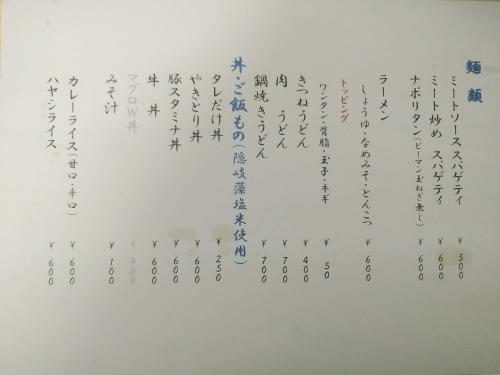 麺類
ミートソーススパゲティ ¥500
ミート炒め スパゲティ ¥600
ナポリタン(ピーマン玉ねぎ無し) ¥600
ラーメン
しょうゆ・なめみそ・とんこつ ¥600
トッピング
ワンタン・背脂・玉子・ネギ ¥50
きつねうどん ¥400
肉 うどん ¥700
鍋焼きうどん ¥700
丼・ご飯もの(隠岐藻塩米使用)
タレだけ丼 ¥250
やきどり丼 ¥600
豚スタミナ丼 ¥600
牛 丼 ¥600
マグロW丼 ¥900
みそ汁 ¥100
カレーライス(甘口・辛口) ¥600
ハヤシライス ¥600